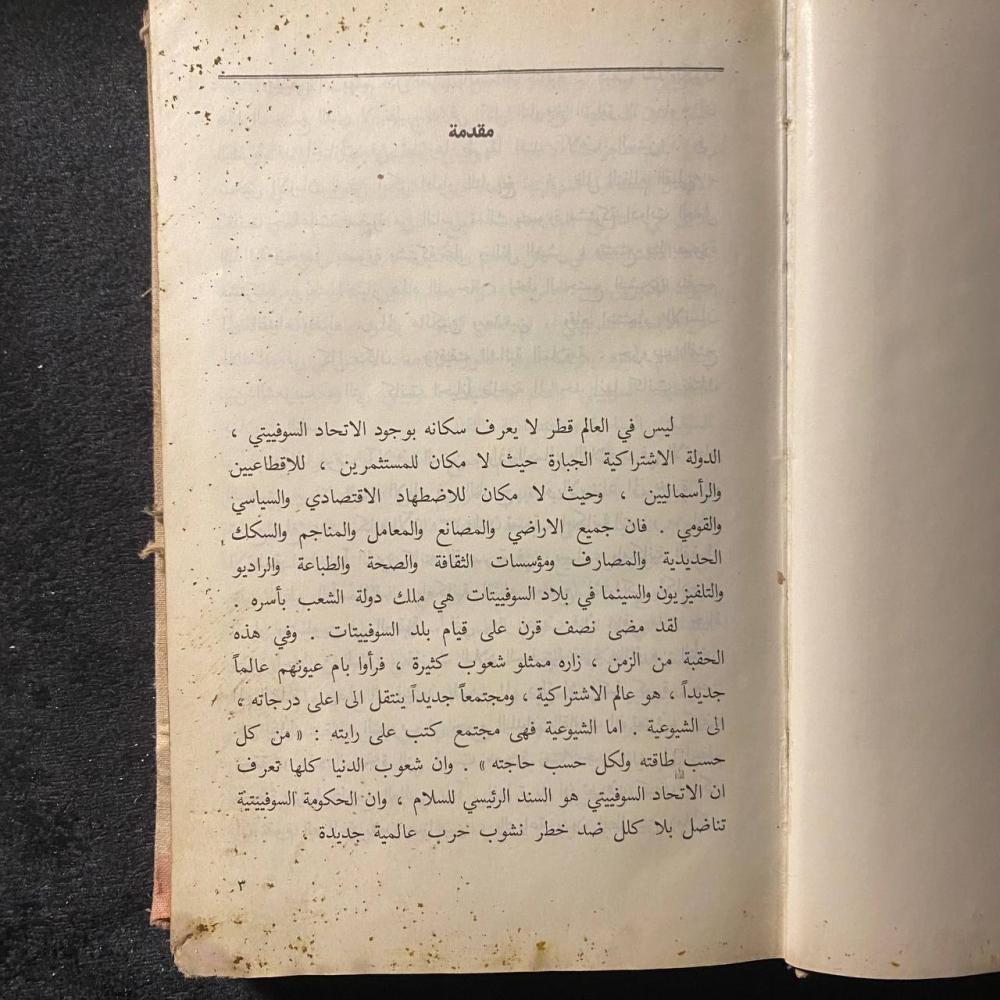 مقدمة
ليس في العالم قطر لا يعرف سكانه بوجود الاتحاد السوفييتي ،
الدولة الاشتراكية الجبارة حيث لا مكان للمستثمرين ، للاقطاعيين
والرأسماليين ، وحيث لا مكان للاضطهاد الاقتصادي والسياسي
والقومي . فان جميع الاراضي والمصانع والمعامل والمناجم والسكك
الحديدية والمصارف ومؤسسات الثقافة والصحة والطباعة والراديو
والتلفيزيون والسينما في بلاد السوفييتات هي ملك دولة الشعب بأسره .
لقد مضى نصف قرن على قيام بلد السوفييتات . وفي هذه
الحقبة من الزمن ، زاره ممثلو شعوب كثيرة ، فرأوا بام عيونهم عالماً
جديداً ، هو عالم الاشتراكية ، ومجتمعاً جديداً ينتقل الى اعلى درجاته ،
الى الشيوعية . اما الشيوعية فهى مجتمع كتب على رايته : « من كل
حسب طاقته ولكل حسب حاجته » . وان شعوب الدنيا كلها تعرف
ان الاتحاد السوفييتي هو السند الرئيسي للسلام ، وان الحكومة السوفييتية
تناضل بلا كلل ضد خطر نشوب حرب عالمية جديدة .
٣